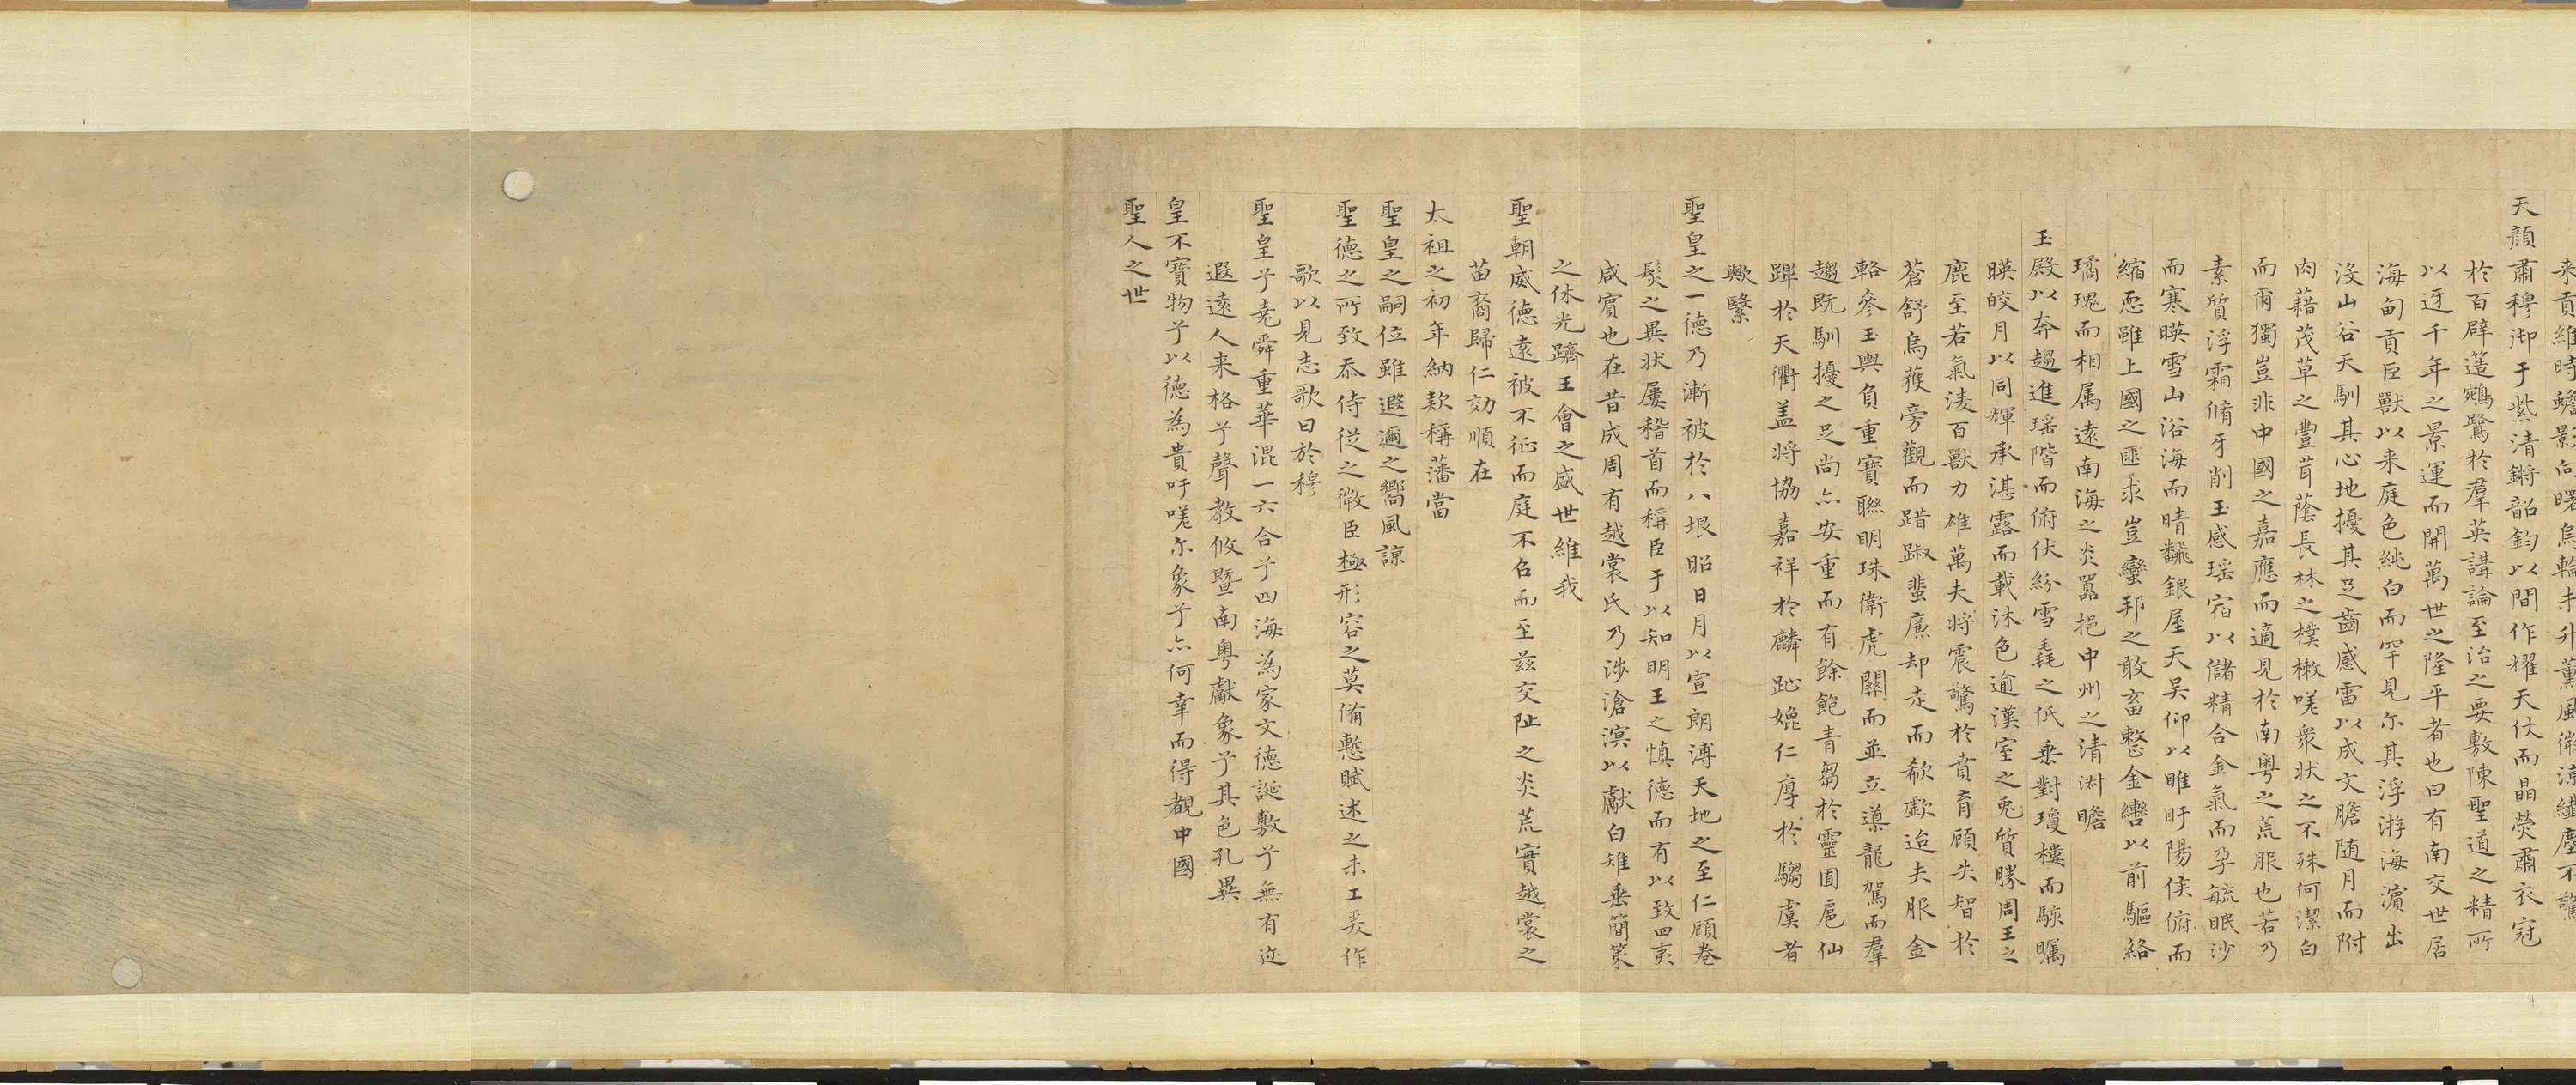 来貢維時蟾影向曙烏輪未升薰風微凉纎塵不驚
天顔肅穆御于紫清鏘韶鈞以間作耀天仗而晶熒肅衣冠
於百辟簉鵷鷺於羣英講論至治之要敷陳聖道之精所
以迓千年之景運而開萬世之隆平者也曰有南交世居
海甸貢臣獸以来庭色純白而罕見尓其浮游海濵出
沒山谷天馴其心地擾其足齒感雷以成文膽随月而附
肉藉茂草之豐茸蔭長林之樸樕嗟衆状之不殊何潔白
而爾獨豈非中國之嘉應而適見於南粤之荒服也若乃
素質浮霜脩牙削玉感瑶宿以儲精合金氣而孕毓眠沙
而寒暎雪山浴海而晴飜銀屋天吴仰以睢盱陽侯俯而
縮恧雖上國之匪求豈蠻邦之敢畜整金轡以前驅絡
璚瑰而相属遠南海之炎嚣挹中州之清淑瞻
玉殿以奔趨進瑶階而俯伏紛雪毳之低垂對瓊樓而駭矚
暎皎月以同輝承湛露而載沐色逾漢室之兎質勝周王之
鹿至若氣凌百獸力雄萬夫将震驚於賁育顧失智於
蒼舒烏獲旁觀而踖踧蜚廉却走而欷歔迨夫服金
輅參玉輿負重寶聯明珠衛虎關而並立導龍駕而羣
趨既馴擾之足尚亦安重而有餘飽青芻於靈囿扈仙
蹕於天衢盖将協嘉祥於麟趾媲仁厚於騶虞者
歟繄
聖皇之一德乃漸被於八垠昭日月以宣朗溥天地之至仁頋卷
髮之異状屢稽首而稱臣于以知明王之慎德而有以致四夷
咸賓也在昔成周有越裳氏乃涉滄溟以獻白雉垂簡策
之休光躋王會之盛世維我
聖朝威德遠被不征而庭不召而至兹交阯之炎荒實越裳之
苗裔歸仁効順在
太祖之初年納款稱藩當
聖皇之嗣位雖遐邇之嚮風諒
聖德之所致忝侍從之微臣極形容之莫俻慙賦述之未工爰作
歌以見志歌曰於穆
聖皇兮堯舜重華混一六合兮四海為家文德誕敷兮無有迩
遐遠人来格兮聲教攸暨南粤獻象兮其色孔異
皇不寳物兮以德為貴吁嗟尓象兮亦何幸而得覩中國
聖人之世